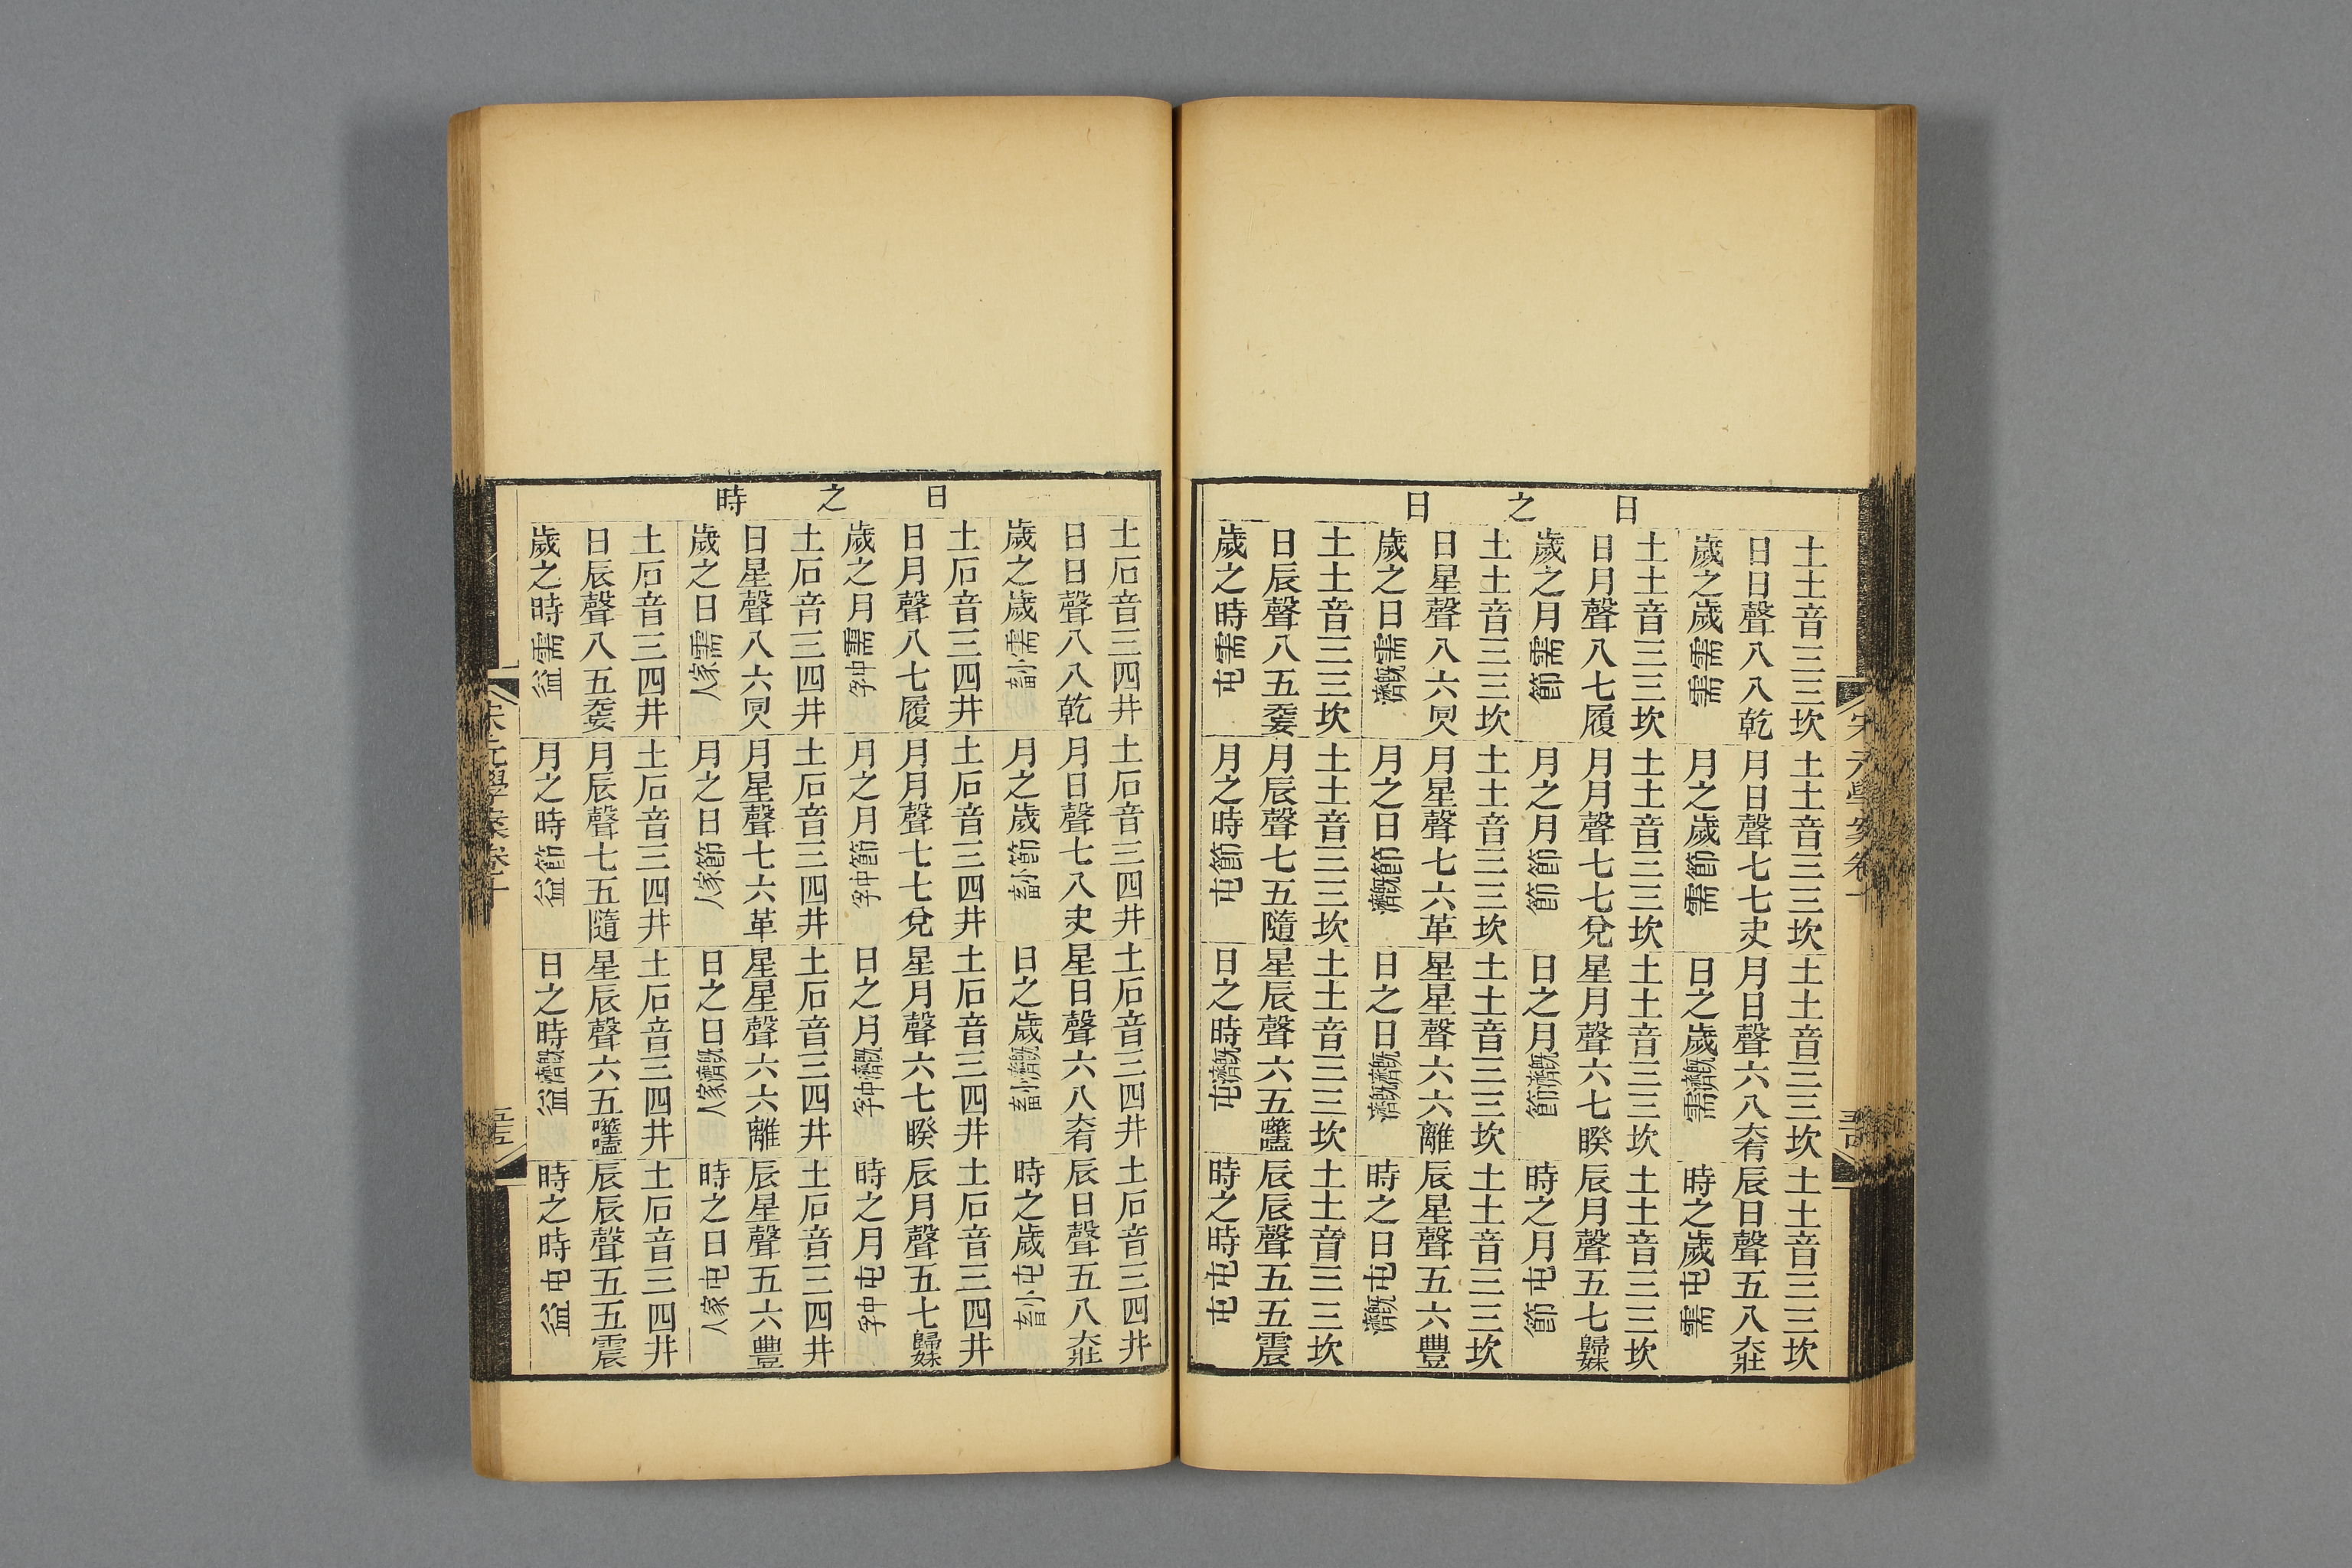 日之日
土土音三三坎土土音三三坎土土音三三坎土土音三三坎
日日聲八八乾月日聲七七夬月日聲六八大有辰日聲五八大壯
歲之歲需需月之歲節需日之歲既濟需時之歲屯需
土土音三三坎土土音三三坎土土音三三坎土土音三三坎
日月聲八七履月月聲七七兌星月聲六七睽辰月聲五七歸妹
歲之月需節月之月節節日之月既濟節時之月屯節
土土音三三坎土土音三三坎土土音三三坎土土音三三坎
日星聲八六同人月星聲七六革星星聲六六離辰星聲五六豐
歲之日需既濟月之日節既濟日之日既濟既濟時之日屯既濟
土土音三三坎土土音三三坎土土音三三坎土土音三三坎
日辰聲八五无妄月辰聲七五隨星辰聲六五噬嗑辰辰聲五五震
歲之時需屯月之時節屯日之時既濟屯時之時屯屯
日之時
土石音三四井土石音三四井土石音三四井土石音三四井
日日聲八八乾月日聲七八夬星日聲六八大有辰日聲五八大壯
歲之歲需小畜月之歲節小畜日之歲既濟小畜時之歲屯小畜
土石音三四井土石音三四井土石音三四井土石音三四井
日月聲八七履月月聲七七兌星月聲六七睽辰月聲五七歸妹
歲之月需中孚月之月節中孚日之月既濟中孚時之月屯中孚
土石音三四井土石音三四井土石音三四井土石音三四井
日星聲八六同人月星聲七六革星星聲六六離辰星聲五六豐
歲之日需家人月之日節家人日之日既濟家人時之日屯家人
土石音三四井土石音三四井土石音三四井土石音三四井
日辰聲八五无妄月辰聲七五隨星辰聲六五噬嗑辰辰聲五五震
歲之時需益月之時節益日之時既濟益時之時屯益
宋元學案卷十